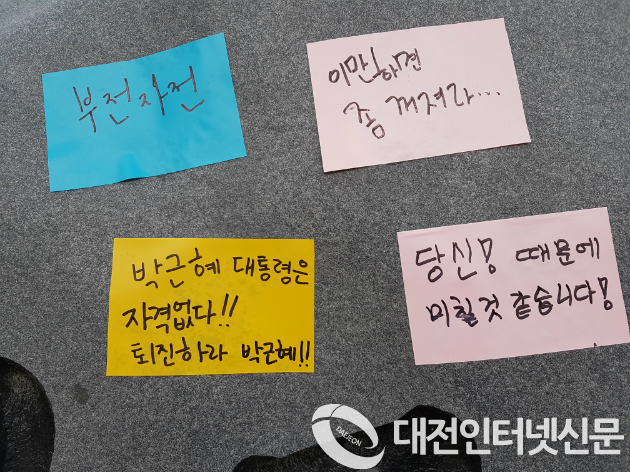 부전자전
이만하면
좀 꺼져라...
박근혜 대통령은
자격없다!!
퇴진하라 박근혜!!
당신! 때문에
미칠것 같습니다!
DAEJEON
대전인터넷신문